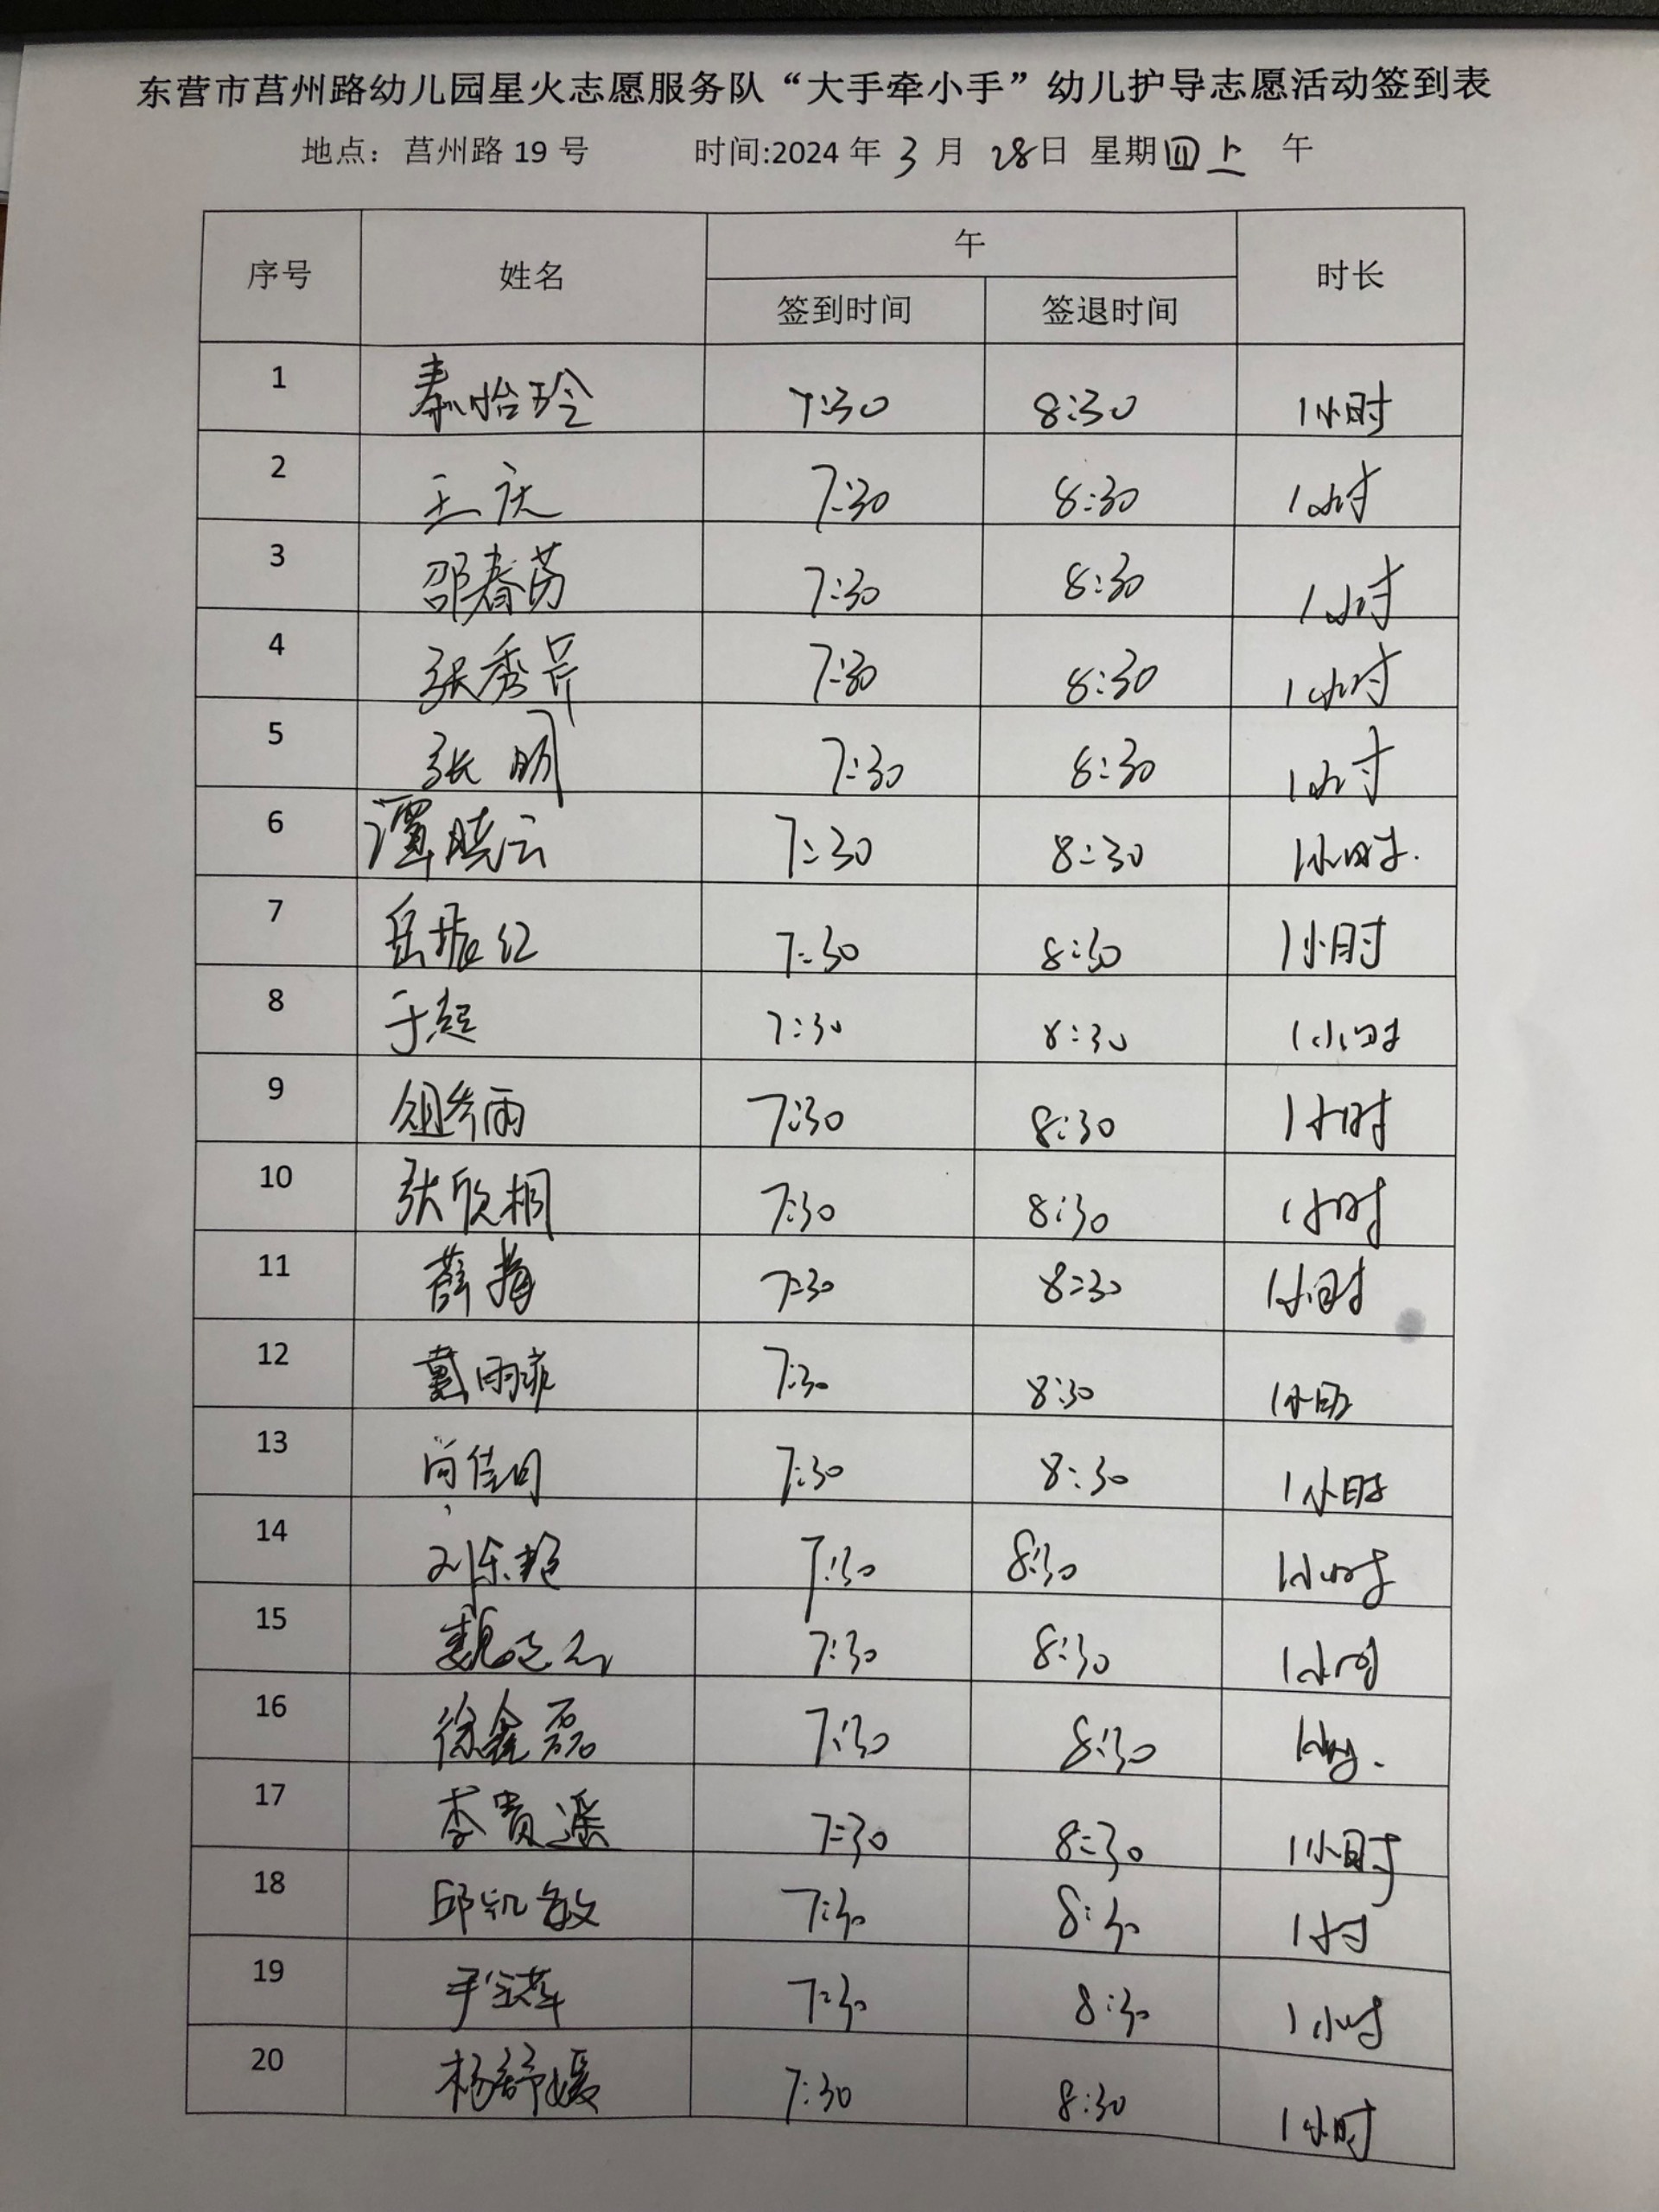 东营市莒州路幼儿园星火志愿服务队“大手牵小手”幼儿护导志愿活动签到表
地点：莒州路 19 号 时间:2024 年 3 月 28日 星期四 上 午
序号 姓名 午 时长
签到时间 签退时间
1 秦怡玲 7:30 8:30 1小时
2 王庆 7:30 8:30 1小时
3 邵春苗 7:30 8:30 1小时
4 张秀芹 7:30 8:30 1小时
5 张明 7:30 8:30 1小时
6 谭晓云 7:30 8:30 1小时.
7 岳振红 7:30 8:30 1小时
8 于超 7:30 8:30 1小时
9 7:30 8:30 1小时
10 张欣桐 7:30 8:30 1小时
11 薛梅 7:30 8:30 1小时
12 戴雨 7:30 8:30 1小时
13 尚佳 7:30 8:30 1小时
14 刘东艳 7:30 8:30 1小时
15 魏 7:30 8:30 1小时
16 徐鑫磊 7:30 8:30 1小时.
17 李贵遥 7:30 8:30 1小时
18 邱凯敏 7:30 8:30 1小时
19 7:30 8:30 1小时
20 杨舒媛 7:30 8:30 1小时